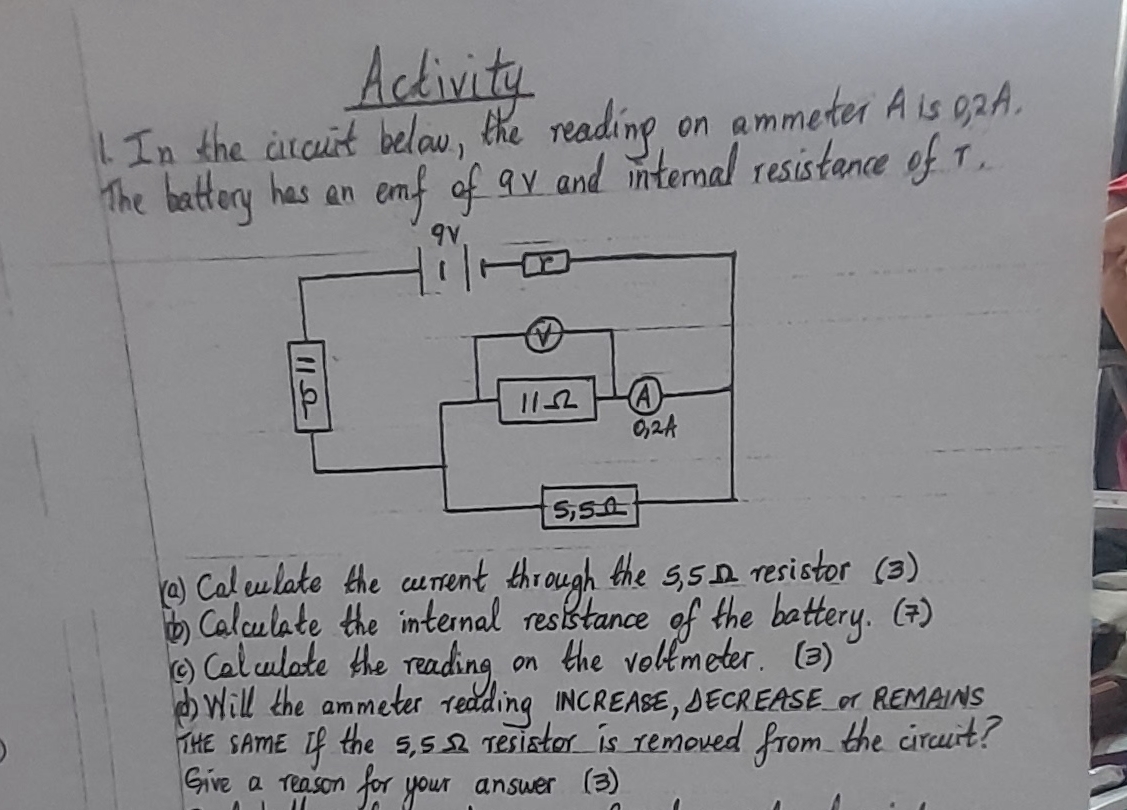 Activity
1. In the circuit below, the reading on ammeter A is 0,2A.
The battery has an emf of 9V and internal resistance of r.
9V
r
V
11Ω
11Ω
A
0,2A
5,5Ω
(a) Calculate the current through the 5,5Ω resistor (3)
(b) Calculate the internal resistance of the battery. (7)
(c) Calculate the reading on the voltmeter. (3)
(d) Will the ammeter reading INCREASE, DECREASE or REMAINS
THE SAME If the 5,5Ω resistor is removed from the circuit?
Give a reason for your answer (3)